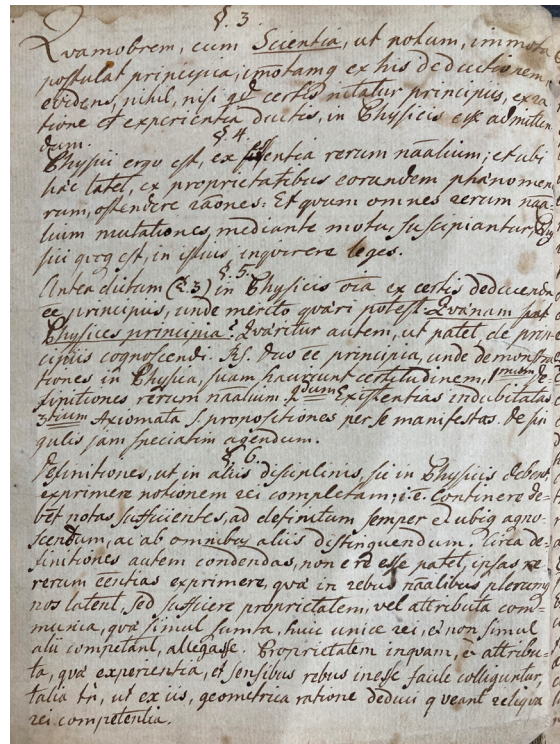 §. 3.
Qvamobrem, cum Scientia, ut notum, immota
postulat principia, imotamq ex his deductionem,
evidens, nihil, nisi qd certis nitatur principiis, exra-
tione et experientia ductis, in Physicis esse admitten
dum.
§. 4.
Physici ergo est, ex essentia rerum naalium; et ubi
haec latet, ex proprietatibus eorundem phaenomen
rum, ostendere raones. Et qvum omnes rerum naa-
lium mutationes, mediante motu, suscipiantur, Phy
sici qvoq est, in istius inqvirere leges.
§. 5.
Antea dictum (§. 3) in Physicis oia ex certis deducenda
ee principiis, unde merito qvaeri potest. Qvaenam sint
Physices principia? Qvaeritur autem, ut patet, de prin
cipiis cognoscendi. Rs. tria ee principia, unde demonstra
tiones in Physica, suam hauriunt certitudinem, 1mum De
finitiones rerum naalium. 2dum Existentias indubitatas
3tium Axiomata s. propositiones per se manifestas. De sin
gulis jam speciatim agendum.
§. 6.
Definitiones, ut in aliis disciplinis, sic in Physicis debent
exprimere notionem rei completam; i.e. continere de-
bet notas sufficientes, ad definitum semper et ubiq agno-
scendum, ac ab omnibus aliis distinguendum. Circa de-
finitiones autem condendas, non e re esse patet, ipsas
rerum eentias exprimere, qvae in rebus naalibus plerumq
nos latent, sed sufficere proprietatem, vel attributa com-
munia, qvae simul sumta, huic unice rei, et non simul
alii competant, allegasse. Proprietatem inqvam, et attribu-
ta, qvae experientia, et sensibus rebus inesse facile colliguntur,
talia tn, ut ex iis, geometrica ratione deduci qveant reliqva
rei competentia.